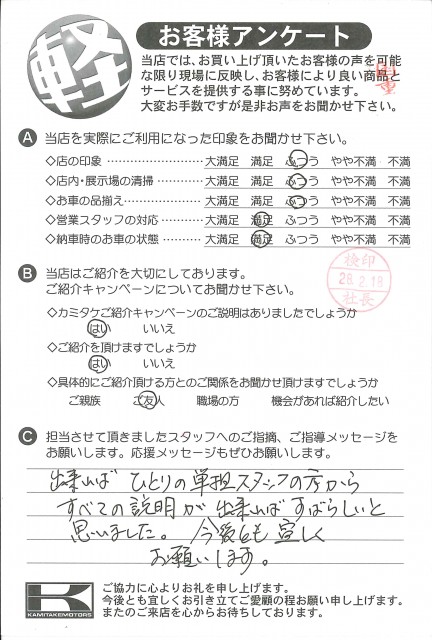 軽
お客様アンケート
当店では、お買い上げ頂いたお客様の声を可能
な限り現場に反映し、お客様により良い商品と
サービスを提供する事に努めています。
大変お手数ですが是非お声をお聞かせ下さい。
A 当店を実際にご利用になった印象をお聞かせ下さい。
◇店の印象 ………………… 大満足 満足 ふつう やや不満 不満
◇店内・展示場の清掃 ………… 大満足 満足 ふつう やや不満 不満
◇お車の品揃え ……………… 大満足 満足 ふつう やや不満 不満
◇営業スタッフの対応 ………… 大満足 満足 ふつう やや不満 不満
◇納車時のお車の状態 ………… 大満足 満足 ふつう やや不満 不満
検印
28.2.18
社長
B 当店はご紹介を大切にしております。
ご紹介キャンペーンについてお聞かせ下さい。
◇カミタケご紹介キャンペーンのご説明はありましたでしょうか
はい いいえ
◇ご紹介を頂けますでしょうか
はい いいえ
◇具体的にご紹介頂ける方とのご関係をお聞かせ頂けますでしょうか
ご親族 ご友人 職場の方 機会があれば紹介したい
C 担当させて頂きましたスタッフへのご指摘、ご指導メッセージを
お願いします。応援メッセージもぜひお願いします。
出来れば ひとりの単担スタッフの方から
すべての説明が出来ればすばらしいと
思いました。 今後とも宜しく
お願いします。
K
KAMITAKEMOTORS
ご協力に心よりお礼を申し上げます。
今後とも宜しくお引き立てご愛顧の程お願い申し上げます。
またのご来店を心からお待ちしております。